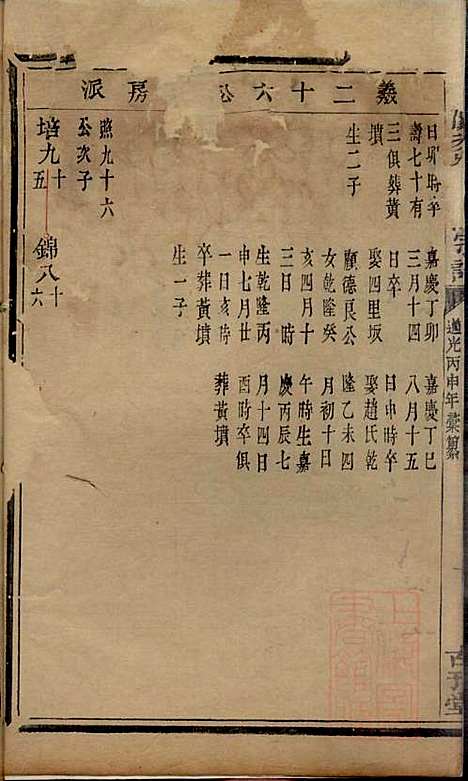 義二十六公房派
日卯時卒
壽七十有
三俱葬黄
墳
生二子
嘉慶丁卯
三月十四
日卒
娶四里坂
顧德良公
女乾隆癸
亥四月十
三日時
生乾隆丙
申七月廿
一日亥時
卒葬黄墳
生一子
嘉慶丁巳
八月十五
日申時卒
娶趙氏乾
隆乙未四
月初十日
午時生嘉
慶丙辰七
月十四日
酉時卒俱
葬黄墳
熙九十六
公次子
培九十五
錦八十六
道光丙申年彙纂